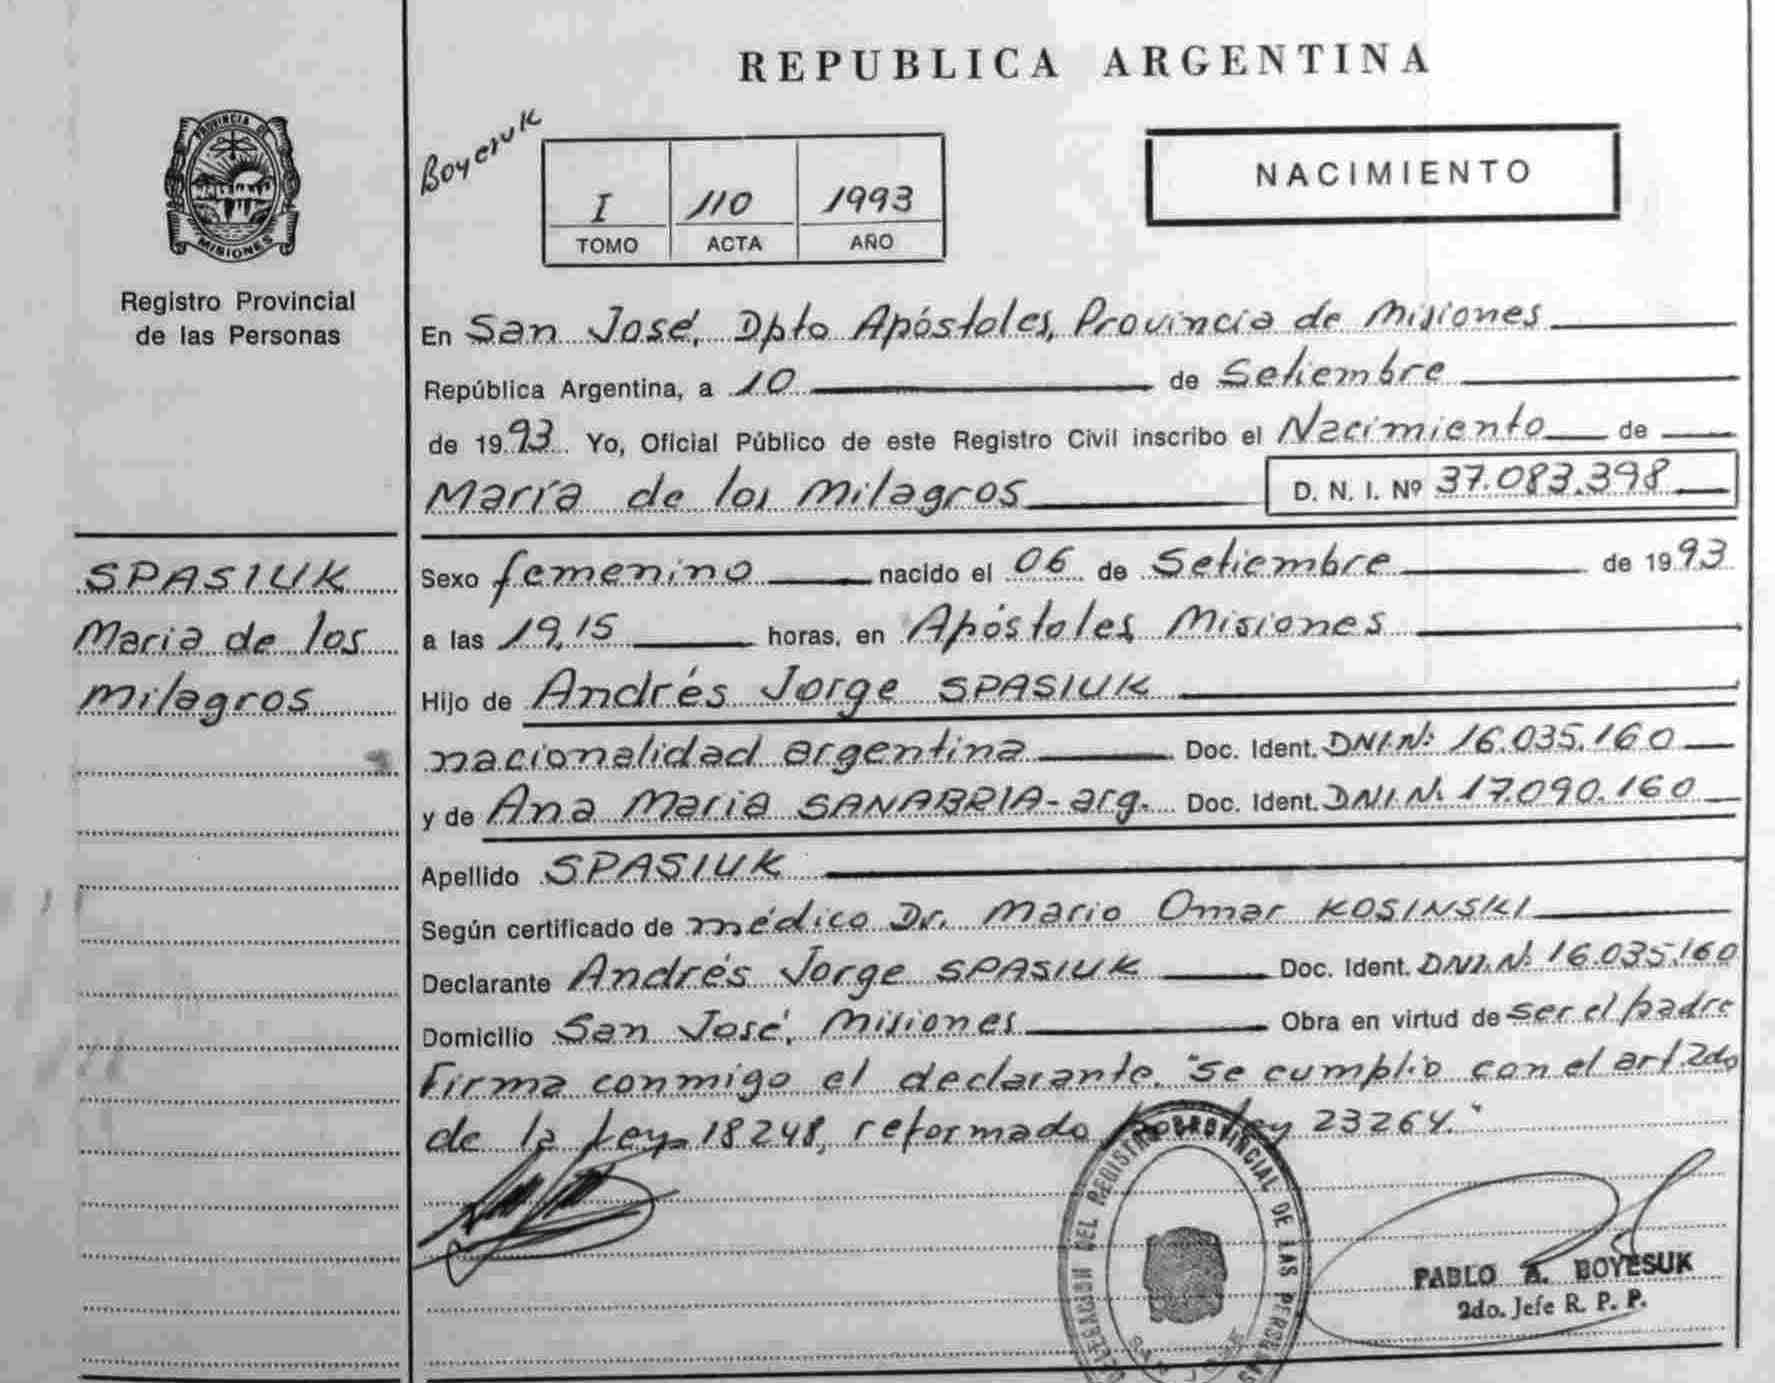 REPUBLICA ARGENTINA
PROVINCIA DE
MISIONES
Registro Provincial
de las Personas
I 110 1993
TOMO ACTA AÑO
NACIMIENTO
En San José, Dpto Apóstoles, Provincia de Misiones
República Argentina, a 10 de Setiembre
de 1993 Yo, Oficial Público de este Registro Civil inscribo el Nacimiento de
María de los Milagros D. N. I. Nº 37.083.398
SPASIUK
Maria de los
Milagros
Sexo femenino nacido el 06 de Setiembre de 1993
a las 19,15 horas, en Apóstoles Misiones
Hijo de Andrés Jorge SPASIUK
nacionalidad argentina Doc. Ident. DNI.N: 16.035.160
y de Ana Maria SANABRIA-arg. Doc. Ident. DNI.N: 17.090.160
Apellido SPASIUK
Según certificado de médico Dr. Mario Omar KOSINSKI
Declarante Andrés Jorge SPASIUK Doc. Ident. DNI.N: 16.035.160
Domicilio San José, Misiones Obra en virtud de ser el padre
Firma conmigo el declarante. "Se cumplió con el art. 2do
de la Ley 18248, reformado por Ley 23264."
DELEGACION DEL REGISTRO PROVINCIAL DE LAS PERSONAS
PABLO A. BOYESUK
2do. Jefe R. P. P.